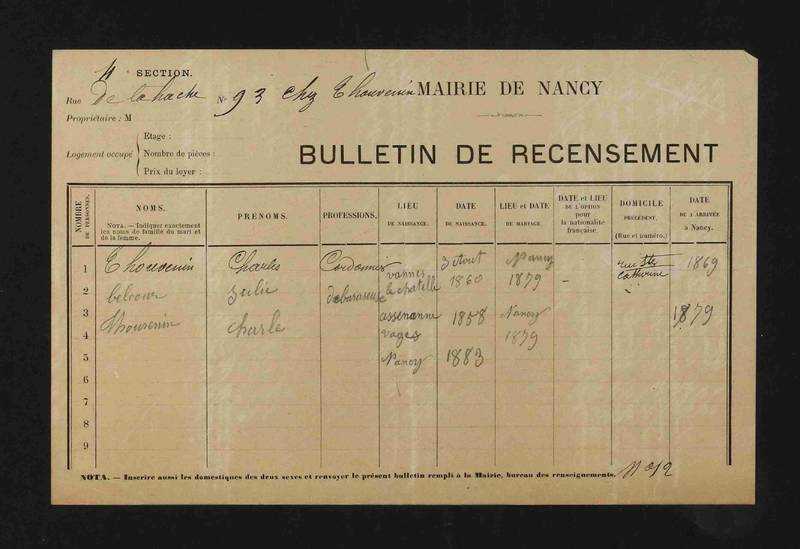 4 SECTION.
Rue De la hache No 93 chez Thouvenin MAIRIE DE NANCY
Propriétaire : M
Logement occupé
Etage :
Nombre de pièces :
Prix du loyer :
BULLETIN DE RECENSEMENT
NOMBRE DE PERSONNES.
NOMS.
NOTA. — Indiquer exactement les noms de famille du mari et de la femme.
PRENOMS.
PROFESSIONS.
LIEU DE NAISSANCE.
DATE DE NAISSANCE.
LIEU et DATE DE MARIAGE.
DATE et LIEU DE L'OPTION pour la nationalité française.
DOMICILE PRÉCÉDENT. (Rue et numéro.)
DATE DE L'ARRIVÉE à Nancy.
1 Thouvenin Charles Cordonnier vannes le chatelle 3 Aout 1860 Nancy 1879 – rue Ste Catherine 1869
2 Julie
3 Thouvenin Charle 1858 Nancy 1879 1879
4 voges
5 Nancy 1883
6
7
8
9
NOTA. — Inscrire aussi les domestiques des deux sexes et renvoyer le présent bulletin rempli à la Mairie, bureau des renseignements.